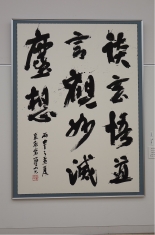 談玄悟道
言觀妙滅
塵想